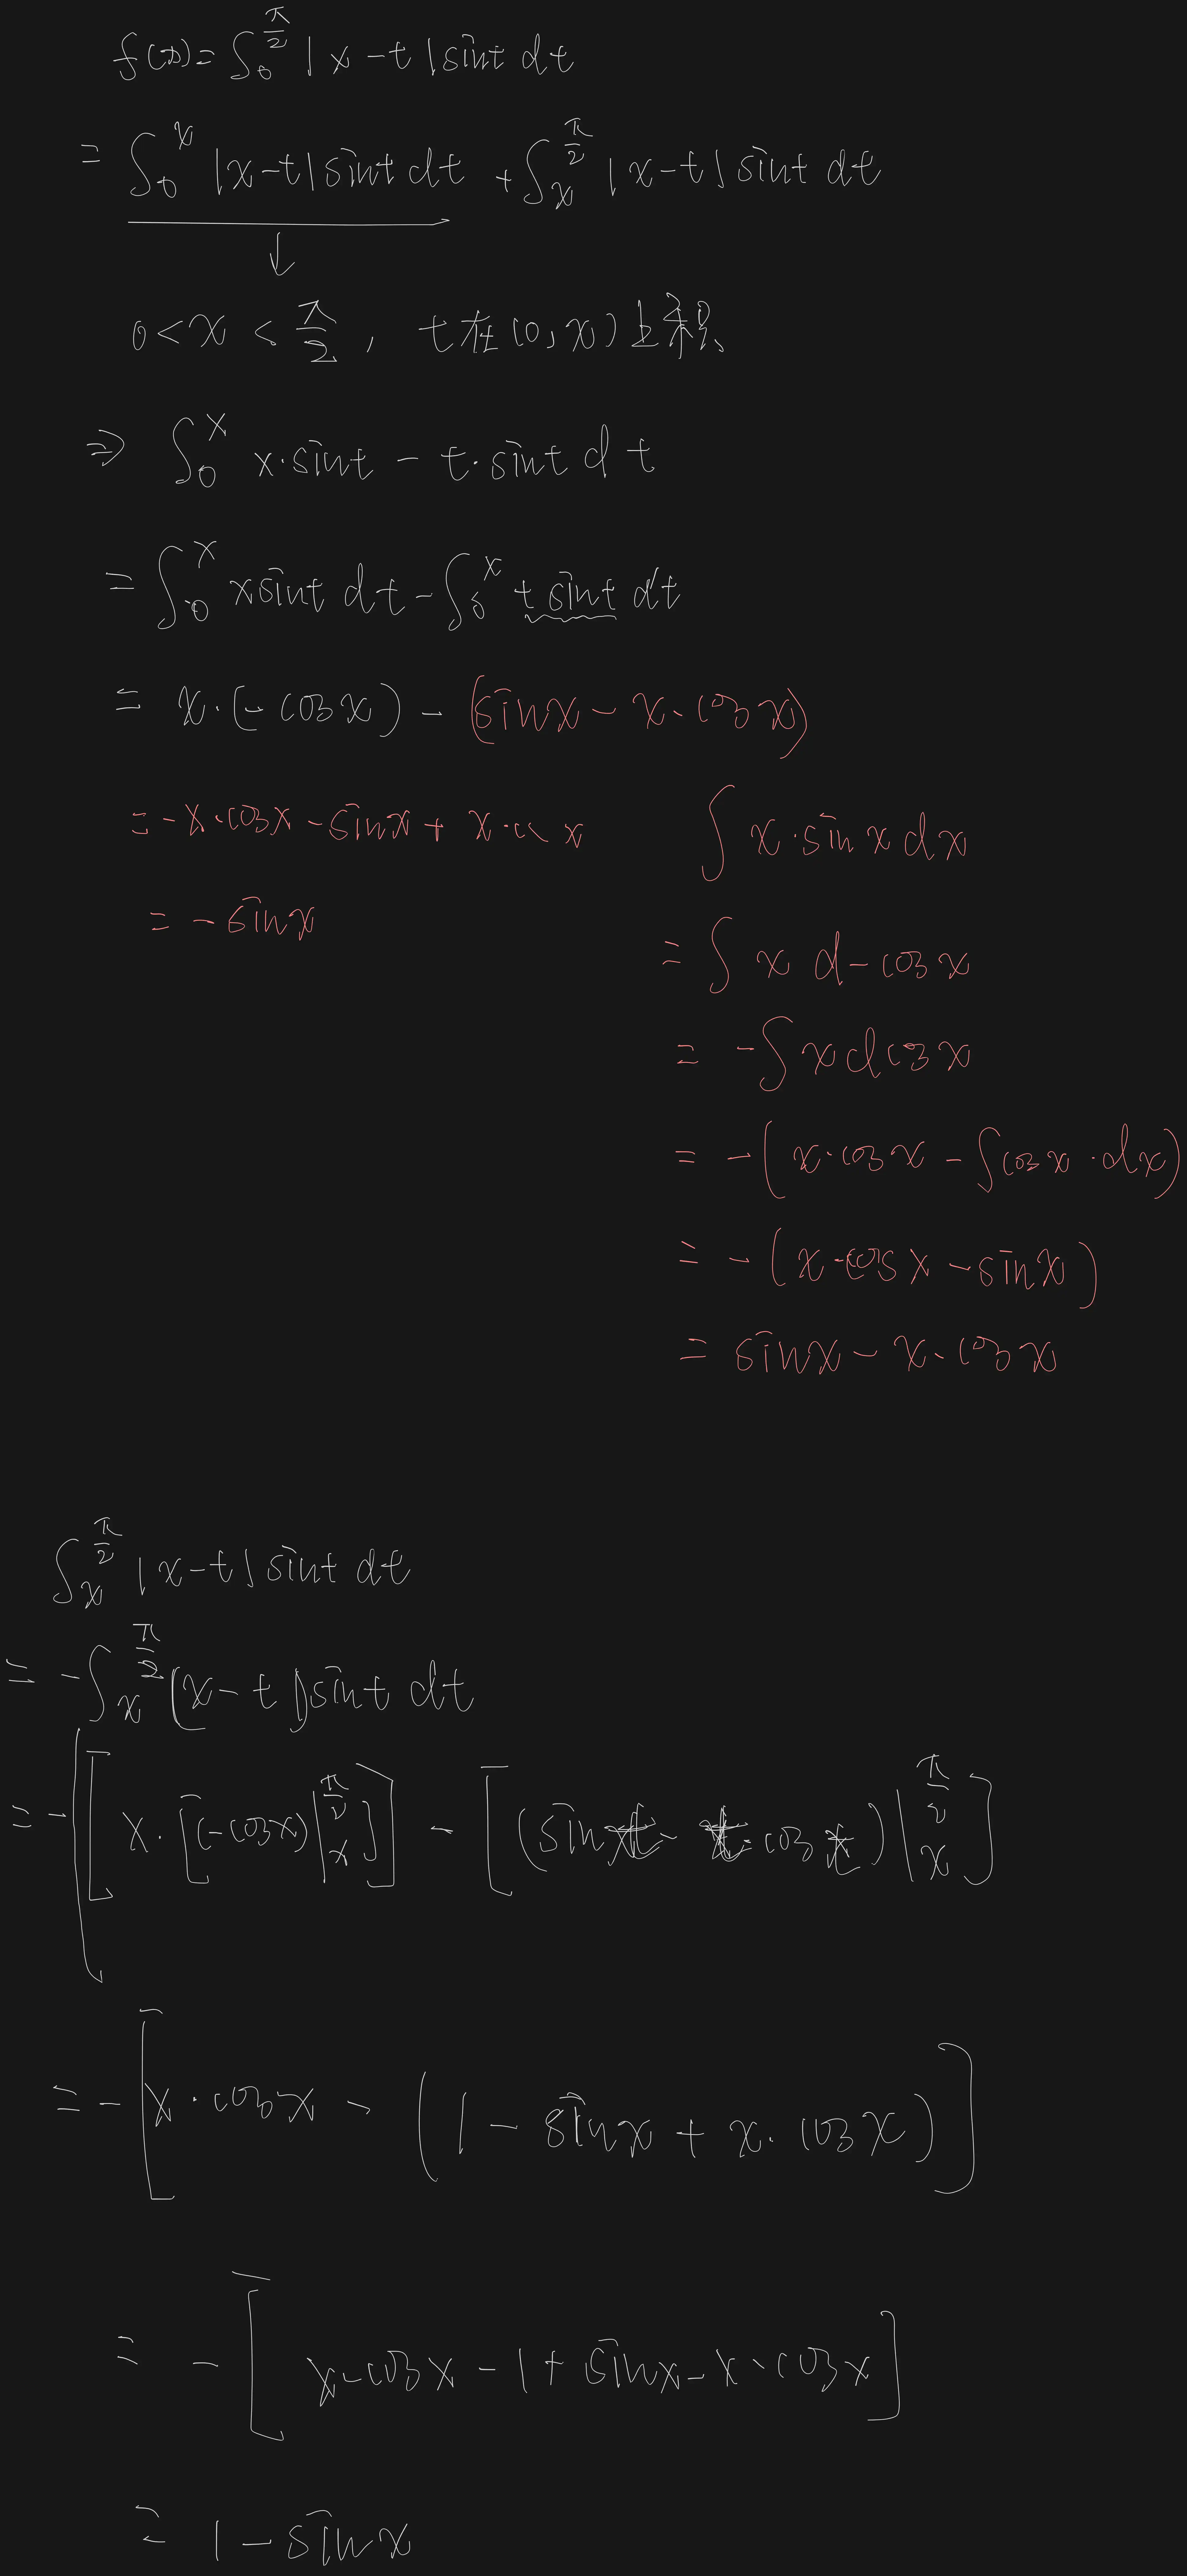 f(x)=∫₀^{π/2} |x-t|sint dt
= ∫₀^x |x-t|sint dt + ∫ₓ^{π/2} |x-t|sint dt
↓
0<x<π/2, t在(0,x)上积
⇒ ∫₀^x x·sint - t·sint dt
= ∫₀^x xsint dt - ∫₀^x tsint dt
= x·(-cosx) - (sinx - x·cosx)
= -x·cosx - sinx + x·cosx
= -sinx
∫ x·sinx dx
= ∫ x d-cosx
= -∫ x dcosx
= -(x·cosx - ∫cosx·dx)
= -(x·cosx - sinx)
= sinx - x·cosx
∫ₓ^{π/2} |x-t|sint dt
= -∫ₓ^{π/2} (x-t)sint dt
= -[[x·[(-cosx)|ₓ^{π/2}]] - [(sint - t·cost)|ₓ^{π/2}]
= -[x·cosx - (1 - sinx + x·cosx)]
= -[x·cosx - 1 + sinx - x·cosx]
= 1 - sinx